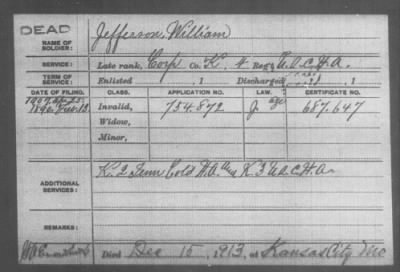 DEAD
NAME OF SOLDIER:
Jefferson, William
SERVICE:
Late rank, Corp Co. K, 4 Reg't U.S.C.H.A.
TERM OF SERVICE:
Enlisted , 1 Discharged , 1
DATE OF FILING. CLASS. APPLICATION NO. LAW. CERTIFICATE NO.
1907
Invalid, 754.872 J. 687.647
Widow,
Minor,
ADDITIONAL SERVICES:
K. 2 Tenn Cold H.A. K 3 U.S.C.H.A.
REMARKS:
Died Dec 15, 1913, at Kansas City Mo